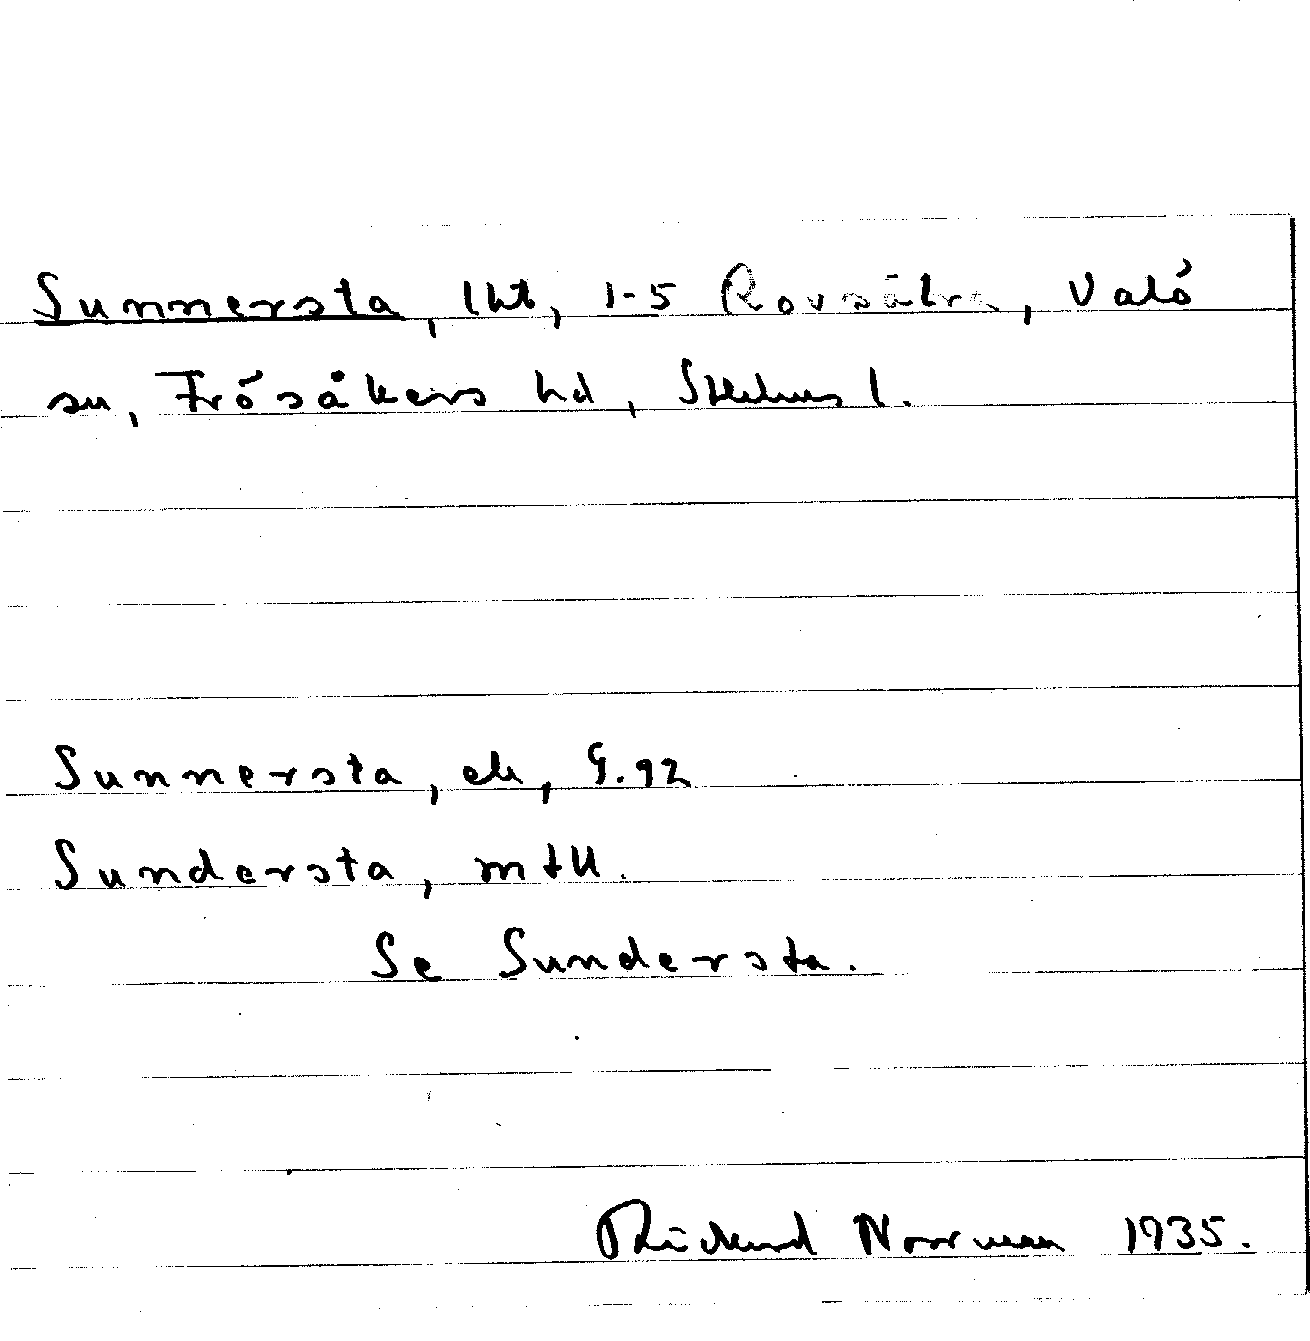 Sunnersta, lht, 1-5 Rovsätra, Valö
sn, Frösåkers hd, Sthlms l.
Sunnersta, ek, G.92
Sundersta, mtU.
Se Sundersta.
Rickard Norrman 1935.